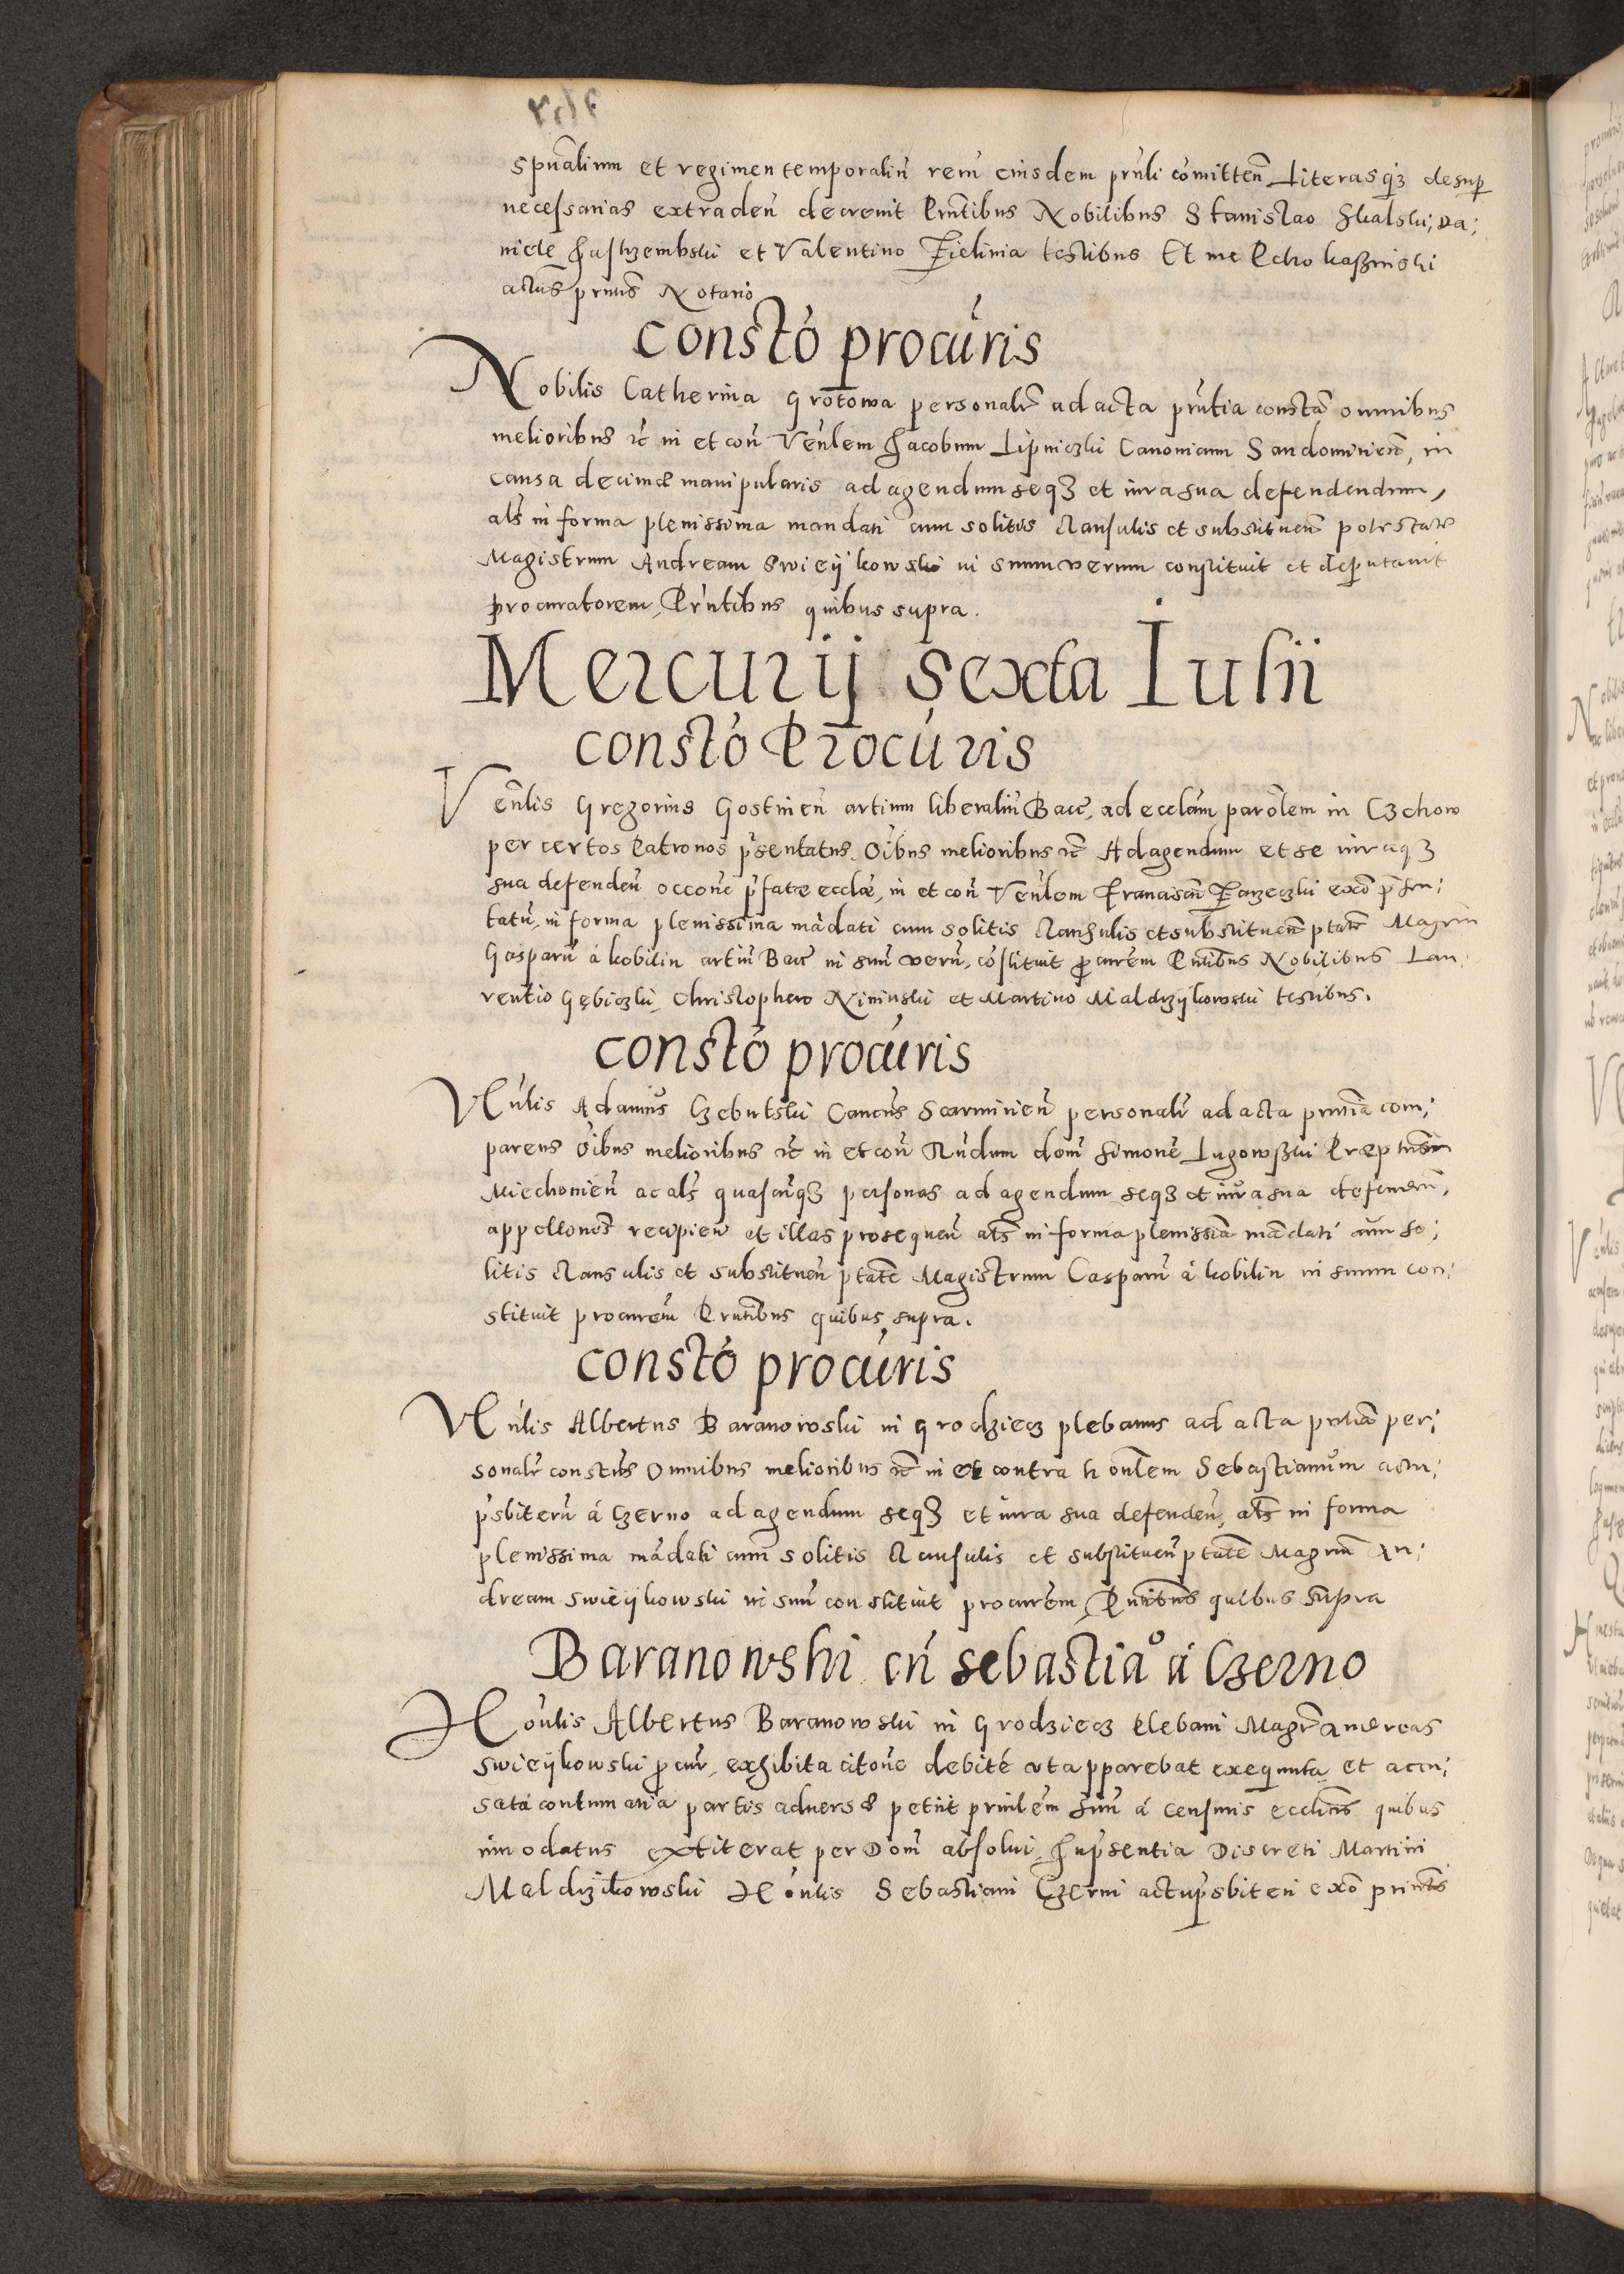 spualium et regimen temporaliu reru eiusdem pnli comitten Literasq3 desup
necessarias extraden decrevit Pntibus Nobilibus Stanislao Skalski, Da;
niele Jastrzembski et Valentino Fielinia testibus Et me Petro
actus pntis Notario
Consto procuris
Nobilis Catherina Grotowa personalr ad acta pntia consta omnibus
melioribus rc in et con Venlem Jacobum Lipniczki Canonicum Sandomirien, in
causa decimæ manipularis ad agendum seq3 et iura sua defendendum,
als in forma plenissima mandati cum solitis clausulis et substituen potestate
Magistrum Andream Swieÿkowski in suum verum constituit et deputavit
procuratorem, Pntibus quibus supra.
Mercurij Sexta Iulii
Consto Procuris
Venlis Gregorius Gostinen artium liberaliu Bacc, ad ecclam parolem in Czchow
per certos Patronos psentatus, Oibus melioribus rc Ad agendum et se iuraq3
sua defenden occone pfatæ ecclæ, in et con Venlem Franciscu exo psen;
tatu, in forma plenissima madati cum solitis clausulis et substituen ptate Magrm
Gasparu á Kobilin artiu Bacc in suu veru, costituit procurem Pntibus Nobilibus Lau;
rentio Gębiczki, Christophero Nininski et Martino Maldrzÿkowski testibus.
Consto procuris
Venlis Adamus Czebutski Cancus Scarmirien personalr ad acta pntia com;
parens oibus melioribus rc in et con Rndum dom Simone Lugowski Præptusm
Miechovien ac als quascuq3 personas ad agendum seq3 et iura sua defenden,
appellones recipien et illas prosequen als in forma plenissia madati cum so;
litis clausulis et substituen ptate Magistrum Casparu á Kobilin in suum con;
stituit procurem Pntibus quibus supra.
Consto procuris
Venlis Albertus Baranowski in Grodziecz plebanus ad acta pntia per;
sonalr constus Omnibus melioribus rc in et contra honlem Sebastianum actu;
psbiteru á Czerno ad agendum seq3 et iura sua defenden, als in forma
plenissima madati cum solitis clausulis et substituen ptate Magrm An;
dream Swieÿkowski in suu constituit procurem, Pntibus quibus supra
Baranowski cu Sebastiao á Czerno
Honlis Albertus Baranowski in Grodziecz Plebani Magr Andreas
Swieÿkowski procur, exhibita citone debité ut apparebat exequuta et accu;
sata contumatia partis adversæ petiit prinlem suu á censuris ecclicis quibus
inodatus extiterat per Dom absolui, In psentia Discreti Martini
Maldrzikowski Honlis Sebastiani Czerni actu psbiteri exo prinlis